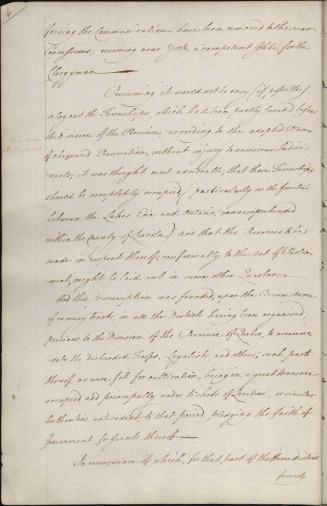 4
forcing the Communication, have been removed to the rear
Concessions; reserving near York, a competent Glebe, for the
Clergyman.
Presuming it would not be easy (if possible)
to layout the Townships, which had been partly located before
the Division of the Province, according to the adopted Plan
of chequered Reservation, without injury to numerous Indivi-
duals; it was thought most advisable, that those Townships
should be completely occupied (particularly in the frontier
between the Lakes Erie and Ontario, now comprehended
within the County of Lincoln) and that the Reserves to be
made in respect thereof, conformably to the Act of Parlia-
ment, might be laid out in some other Quarter.
And this presumption was founded, upon the Circumstance
of so many tracts, in all the Districts having been organised,
previous to the Division of the Province of Quebec, to accommo-
date the disbanded Troops, Loyalists and others; such parts
thereof as were fit for cultivation, being in a great measure
occupied and principally under tickets of Location, or similar
Authorities, antecedent to that period, pledging the faith of
Government for Grants thereof.
In consequence of which, for that part of the Home District
formerly